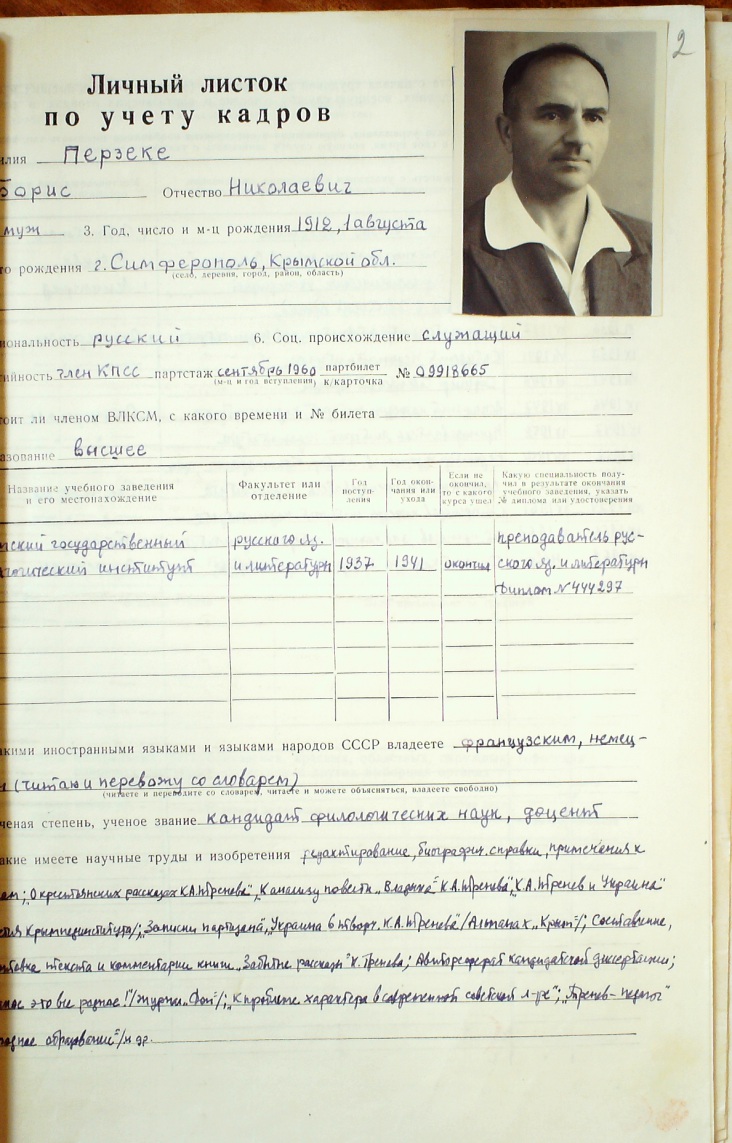 2
Личный листок
по учету кадров
илия Перзеке
Борис Отчество Николаевич
муж 3. Год, число и м-ц рождения 1912, 1 августа
то рождения г. Симферополь, Крымской обл.
(село, деревня, город, район, область)
иональность русский 6. Соц. происхождение служащий
тийность член КПСС партстаж сентябрь 1960 партбилет № 09918665
(м-ц и год вступления) к/карточка
тоит ли членом ВЛКСМ, с какого времени и № билета
азование высшее
Название учебного заведения и его местонахождение
Факультет или отделение
Год поступ-ления
Год окон-чания или ухода
Если не окончил, то с какого курса ушел
Какую специальность полу-чил в результате окончания учебного заведения, указать № диплома или удостоверения
мский государственный русского яз. преподаватель рус-
гогический институт и литературы 1937 1941 окончил ского яз. и литературы
Диплом № 444297
акими иностранными языками и языками народов СССР владеете французским, немец-
(читаю и перевожу со словарем)
(читаете и переводите со словарем, читаете и можете объясняться, владеете свободно)
ченая степень, ученое звание кандидат филологических наук, доцент
акие имеете научные труды и изобретения редактирование, биографич. справки, примечания к
„О крестьянских рассказах К.А. Тренева", „К анализу повести „Владыка" К.А. Тренева", „К.А. Тренев и Украина"
Крымпединститута/; „Записки партизана", „Украина в творч. К.А. Тренева" /Альманах „Крым"/; Составление,
товка текста и комментарии книги „Забытые рассказы" К. Тренева; Автореферат кандидатской диссертации;
это все родное!" /журнал „Дон"/; „К проблеме характера в современной советской л-ре"; „Тренев - педагог"
образование"/ и др.